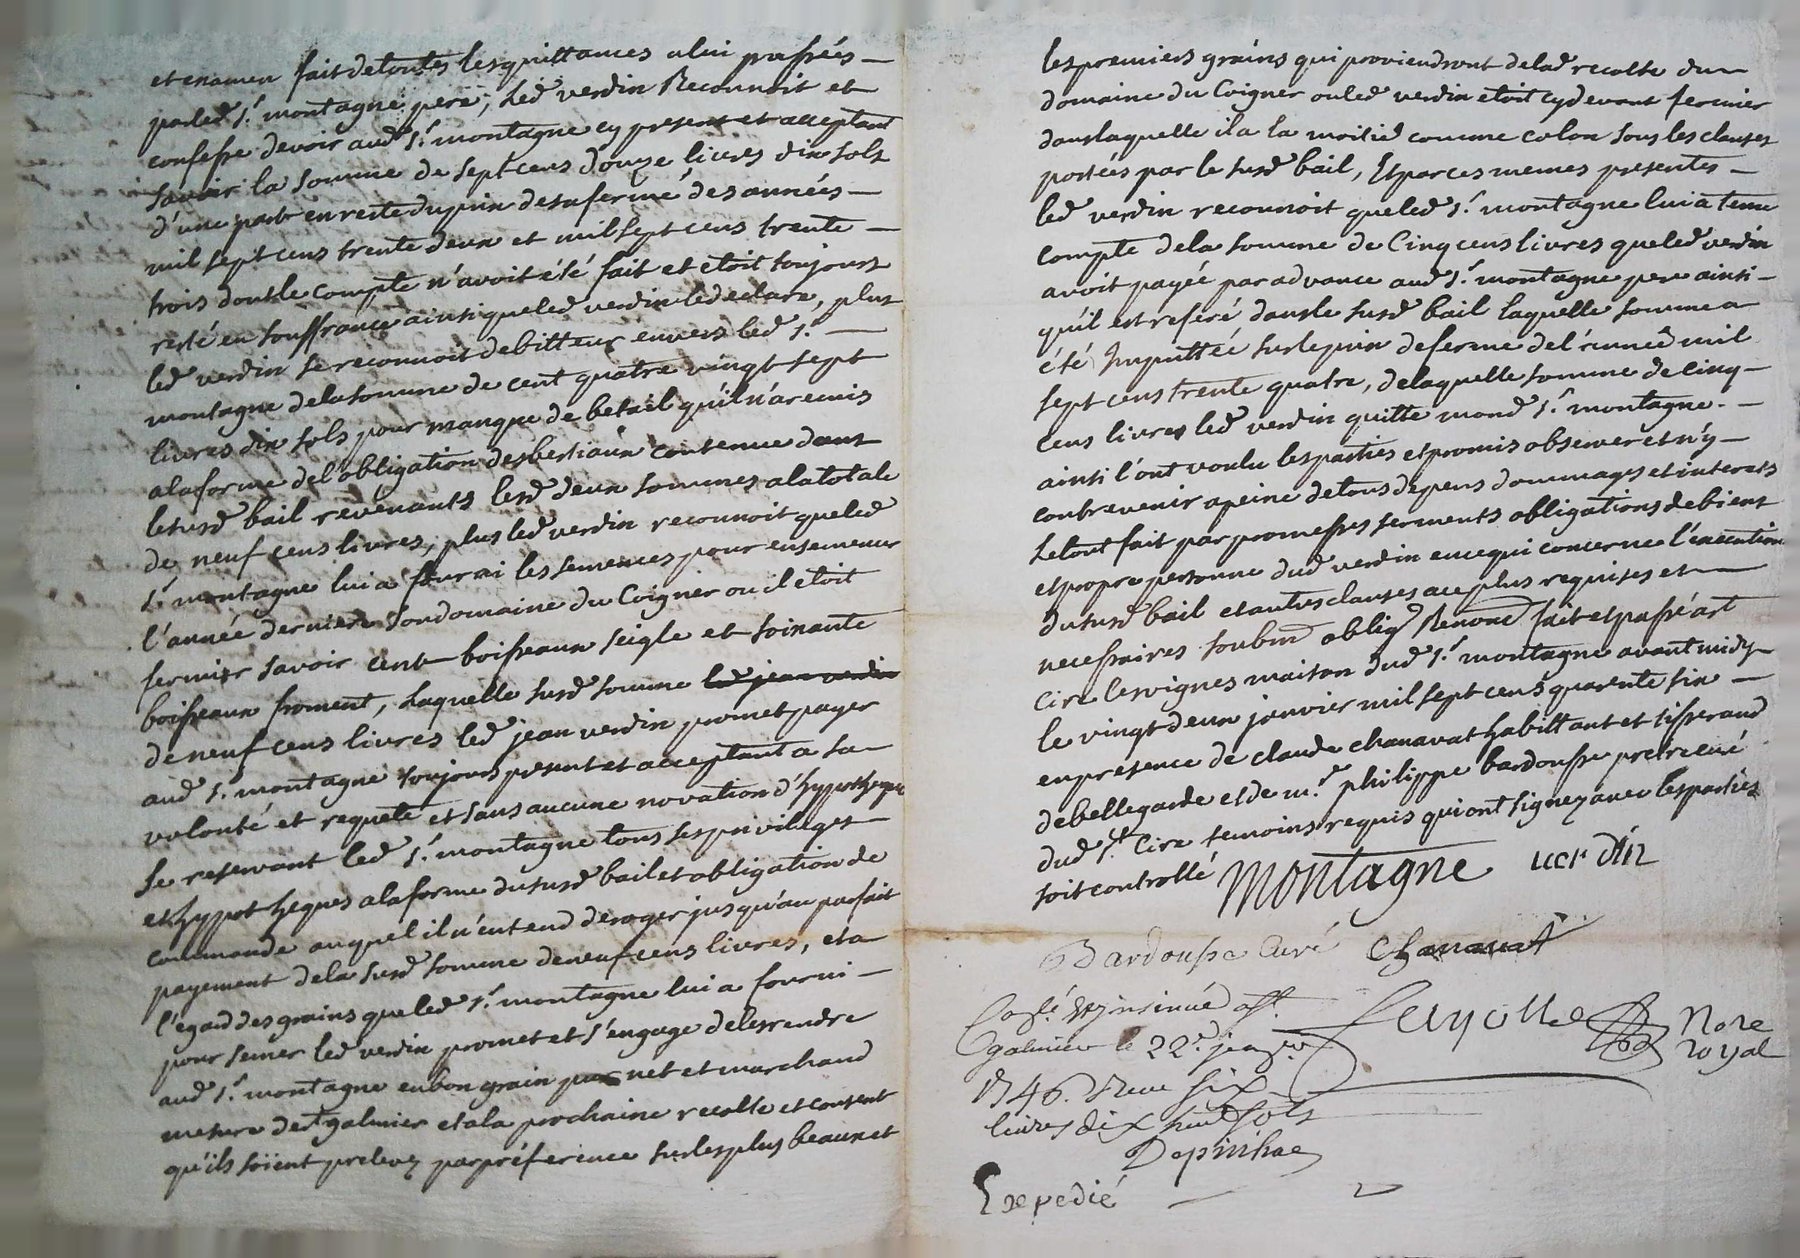 et examen fait de toutes les quittances a lui passées —
par led. Sr. montagne pere, Led. verdin Reconnoit et
confesse devoir aud. Sr. montagne cy present et acceptant
savoir la somme de sept cens douze livres dix sols
d'une part en reste du prix de sa ferme des années —
mil sept cens trente deux et mil sept cens trente —
trois dont le compte n'avoit été fait et etoit toujours
resté en souffrance ainsi que led. verdin le declare, plus
led. verdin se reconnoit debitteur envers led. Sr. —
montagne de la somme de cent quatre vingt sept
livres dix sols pour manque de betail qu'il n'a remis
a la forme de l'obligation des bestiaux contenue dans
le susd. bail revenants lesd. deux sommes a la totale
de neuf cens livres, plus led. verdin reconnoit que led.
Sr. montagne lui a fourni les semences pour ensemencer
l'année derniere son domaine du Coignier ou il etoit
fermier savoir cent boisseaux seigle et soixante
boisseaux froment, Laquelle susd. somme led. jean verdin
de neuf cens livres led. jean verdin promet payer
aud. Sr. montagne toujours present et acceptant a sa —
volonté et requete et sans aucune novation d'hypotheque
se reservant led. Sr. montagne tous ses privileges —
et hypotheques a la forme du susd. bail et obligation de
commande auquel il n'entend deroger jusqu'au parfait
payement de la susd. somme de neuf cens livres, et a
l'egard des grains que led. Sr. montagne lui a fourni —
pour semer led. verdin promet et s'engage de les rendre
aud. Sr. montagne en bon grain pur net et marchand
mesure de St galmier et a la prochaine recolte et consent
qu'ils soient prelevez par préference sur les plus beaux et
les premiers grains qui proviendront de lad. recolte du —
domaine du Coignier ou led. verdin etoit cy devant fermier
dans laquelle il a la moitié comme colon sous les clauses
portées par le susd. bail, Et par ces memes presentes —
led. verdin reconnoit que led. Sr. montagne lui a tenu
compte de la somme de Cinq cens livres que led. verdin
avoit payée par advance aud. Sr. montagne pere ainsi —
qu'il est referé dans le susd. bail laquelle somme a
été Imputtée sur le prix de ferme de l'année mil
sept cens trente quatre, de laquelle somme de cinq —
cens livres led. verdin quitte mond. Sr. montagne. —
ainsi l'ont voulu les parties et promis observer et n'y —
contrevenir a peine de tous depens dommages et interets
Le tout fait par promesses serments obligations de biens
et propre personne dud. verdin en ce qui concerne l'execution
du susd. bail et autres clauses au plus requises et —
necessaires soubm. oblig. Renond. fait et passé a st
Cire les vignes maison dud. Sr. montagne avant midy
le vingt deux janvier mil sept cens quarente six —
en presence de claude chanavat habittant et tisserand
de bellegarde et de mr. philippe bardousse pretre curé
dud. St. Cire temoins requis qui ont signez avec les parties
soit controllé Montagne uerdin
Bardousse Curé Chanavat
Conlé. et insinué a St.
galmier le 22e. janver
1746. Receu six
livres dix huit sols
Depinhac
Nore
royal
Expedié